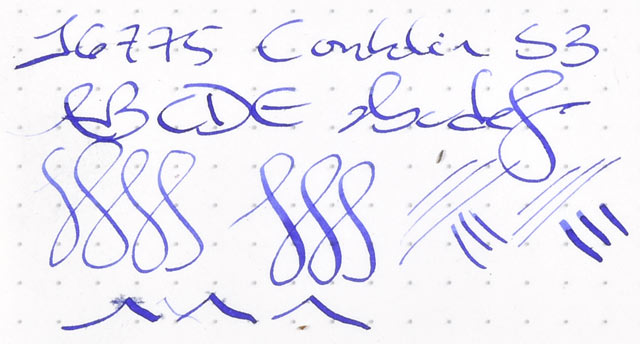 16775 Conklin S3
ABCDE abcdef